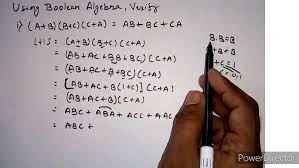 Using Boolean Algebra, Verify
i) (A+B)(B+C)(C+A) = AB+BC+CA
LHS = (A+B)(B+C)(C+A)
= (AB+AC+BB+BC)(C+A)
= (AB+AC+B+BC)(C+A)
= [AB+AC+B(1+C)](C+A)
= (AB+AC+B)(C+A)
= ABC + ABA + ACC + AAC
= ABC +
B.B=B
+B+B
+C=1
Made with KINEMASTER